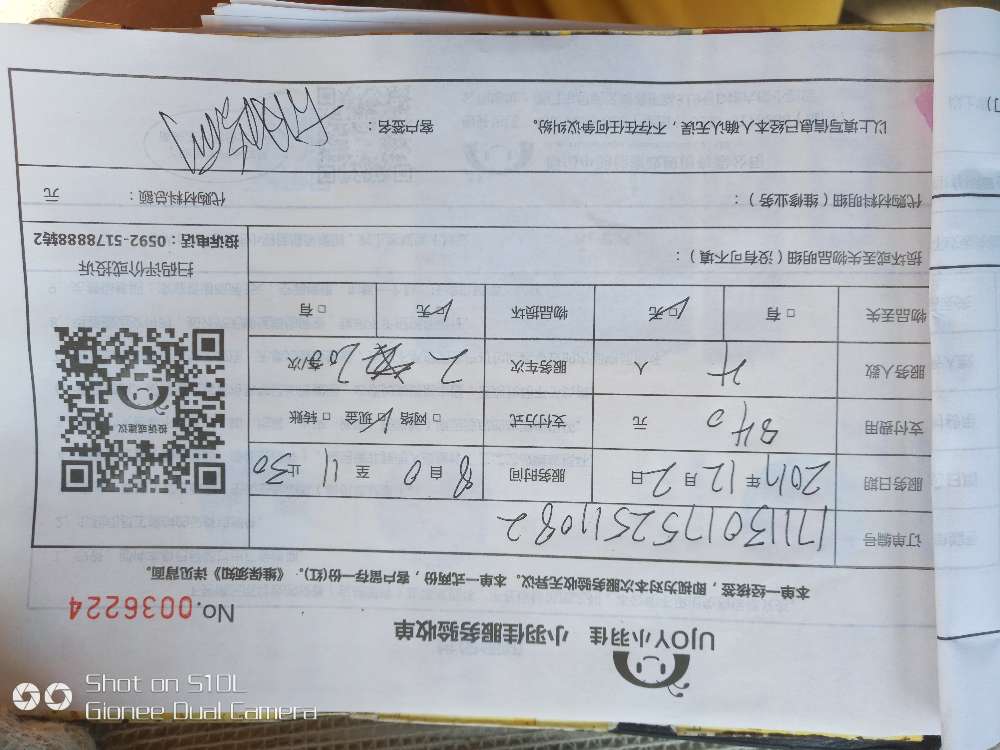 UJOY小羽佳 小羽佳服务验收单
No.0036224
本单一经核签，即视为对本次服务验收无异议。本单一式两份，客户留存一份(红)。《维保须知》详见背面。
订单编号 171130175251082
服务日期 2017年12月2日 服务时间 8 0 自 至 11 30 止
支付费用 840 元 支付方式 □网络 □现金 □转账
服务人数 4 人 服务车次 2 车/次
物品丢失 □有 □无 物品损坏 □无 □有
投诉或建议
扫码评价或投诉
投诉电话：0592-5178888转2
损坏或丢失物品明细（没有可不填）：
代购材料明细（维修业务）： 代购材料总额： 元
以上填写信息已经本人确认无误，不存在任何争议纠纷。 客户签名：
Shot on S10L
Gionee Dual Camera